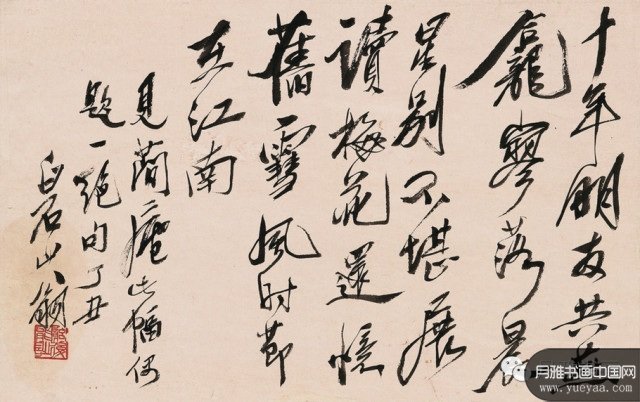 十年朋友共燈
龕寥落晨
星別不堪展
讀梅花還憶
舊雪風時節
在江南
見簡庵此幅偶
題一絕句丁丑
白石山翁
月雅书画中国网
www.yueyaa.com